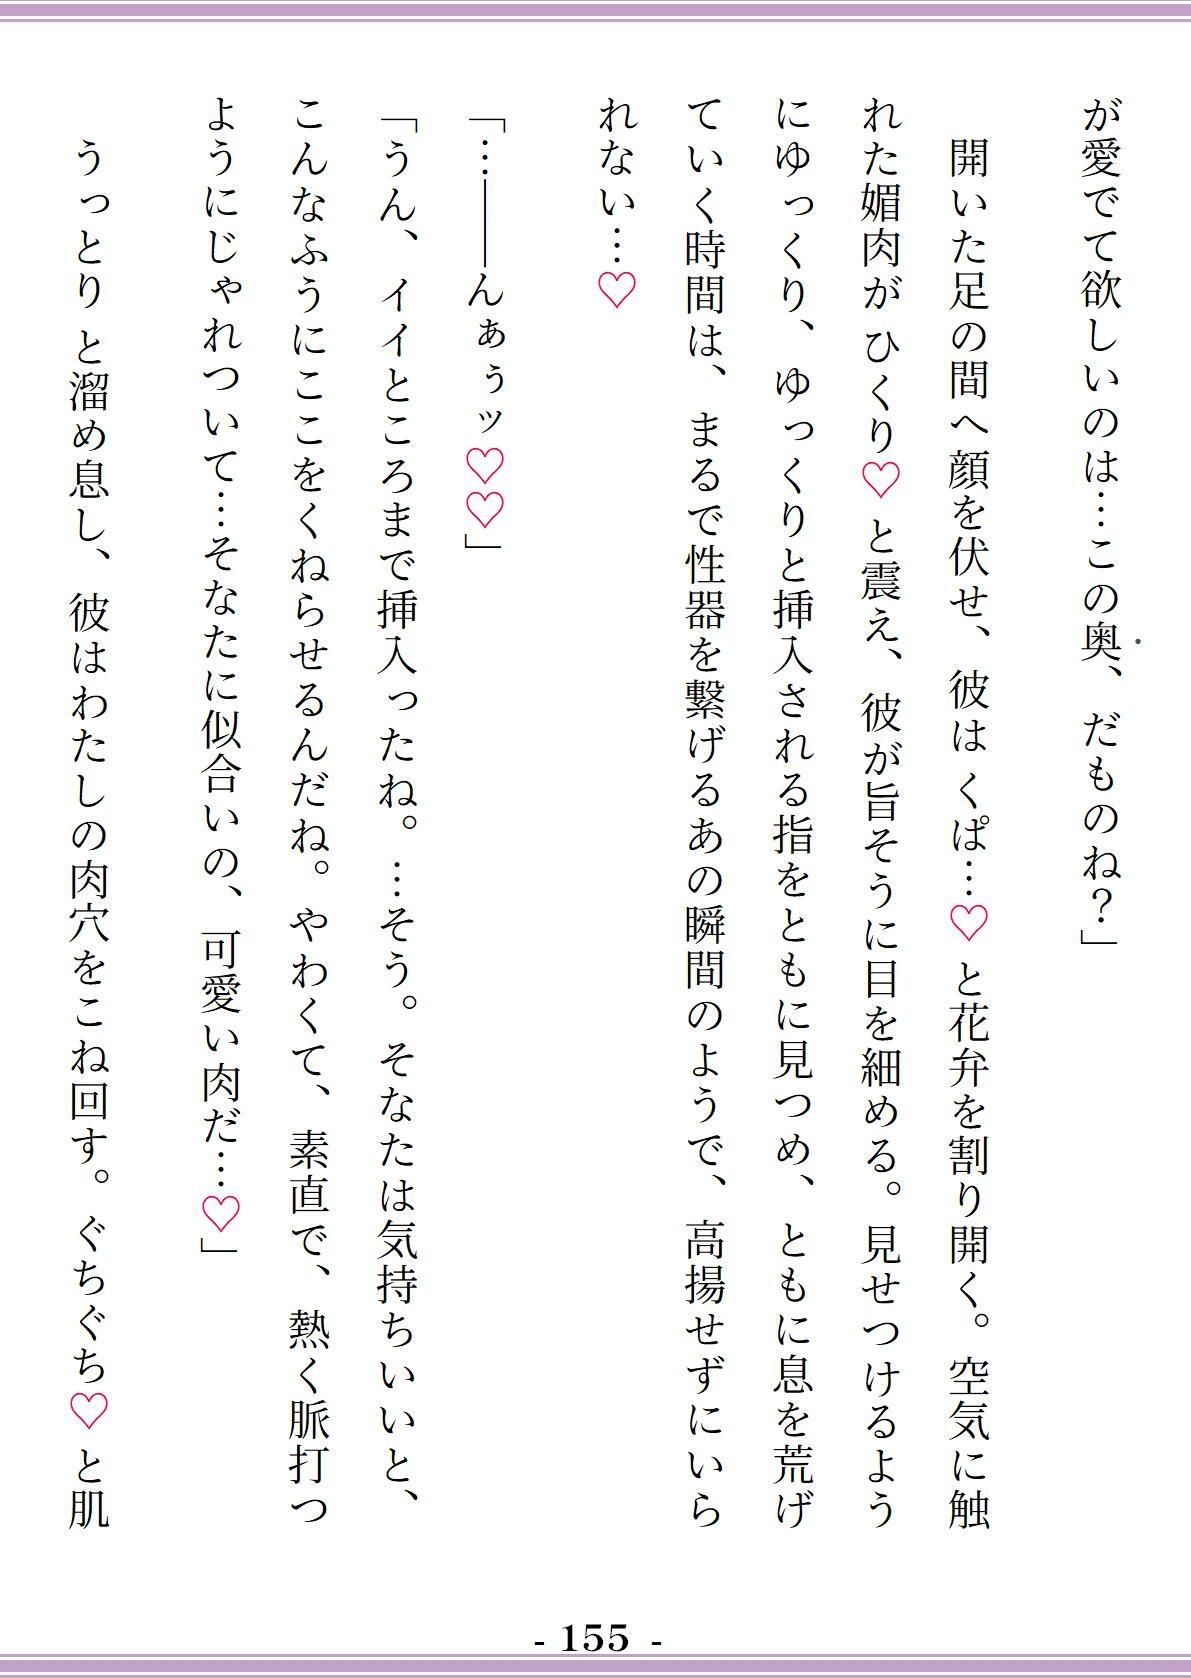 が愛でて欲しいのは…この奥、だものね？」
開いた足の間へ顔を伏せ、彼は くぱ…♡ と花弁を割り開く。空気に触
れた媚肉が ひくり♡ と震え、彼が旨そうに目を細める。見せつけるよう
にゆっくり、ゆっくりと挿入される指をともに見つめ、ともに息を荒げ
ていく時間は、まるで性器を繋げるあの瞬間のようで、高揚せずにいら
れない…♡
「…――んぁぅッ♡♡」
「うん、イイところまで挿入ったね。…そう。そなたは気持ちいいと、
こんなふうにここをくねらせるんだね。やわくて、素直で、熱く脈打つ
ようにじゃれついて…そなたに似合いの、可愛い肉だ…♡」
うっとり と溜め息し、彼はわたしの肉穴をこね回す。ぐちぐち♡ と肌
- 155 -